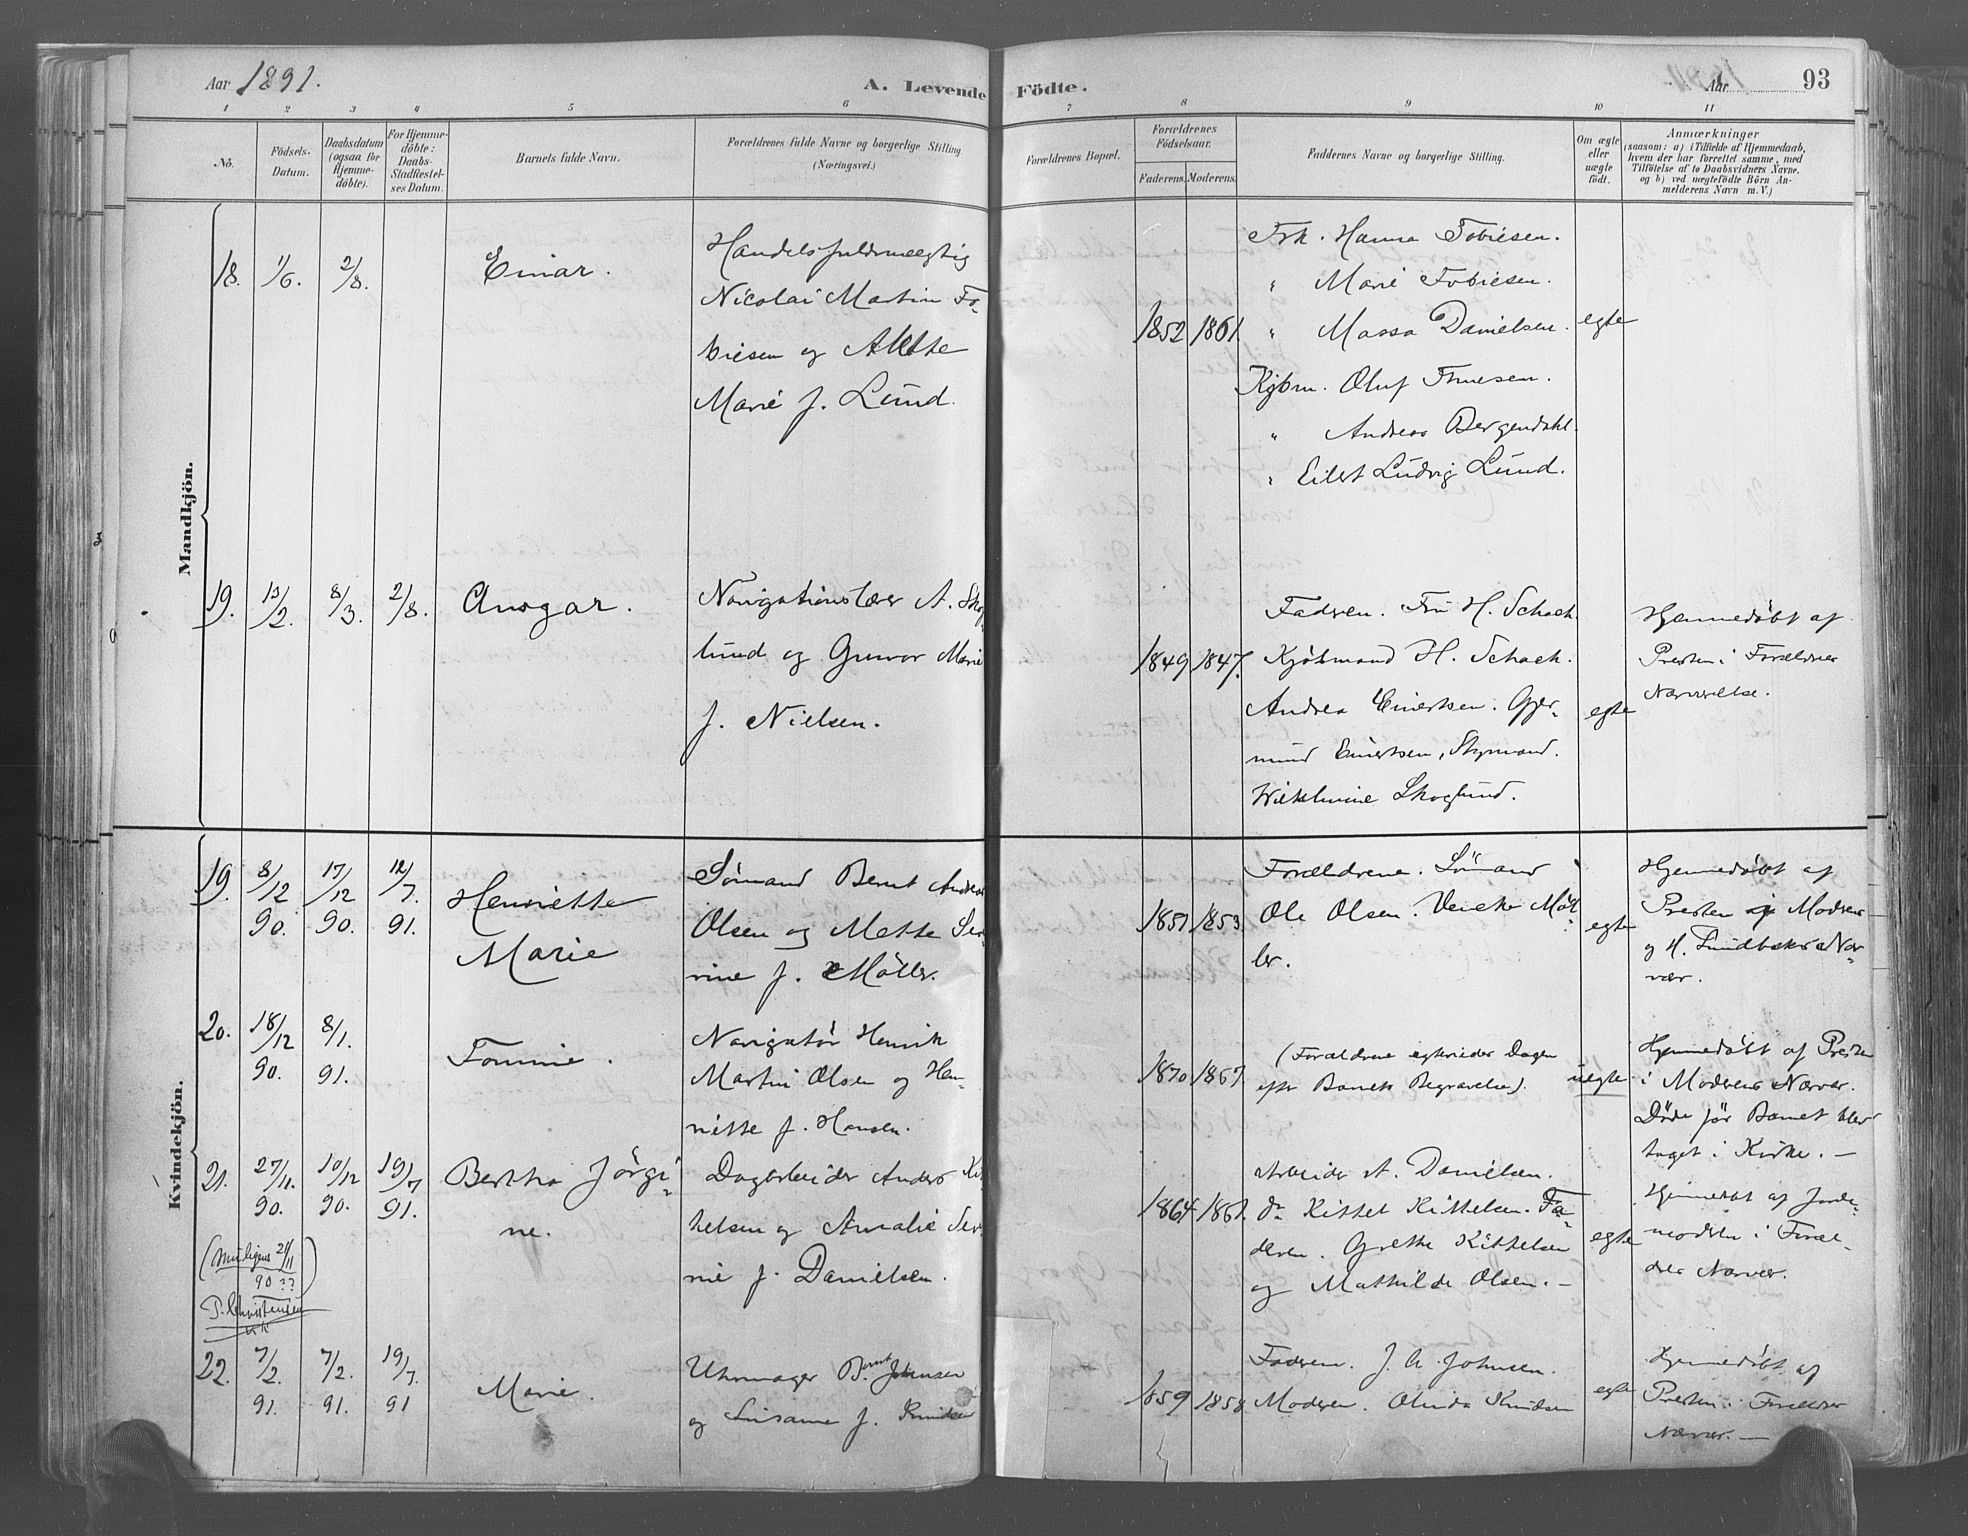 Aar 1891.
A. Levende Födte.
Aar 93
1 2 3 4 5 6 7 8 9 10 11
No.
Födsels-
Datum.
Daabsdatum
(ogsaa for
Hjemme-
döbte).
For Hjemme-
döbte:
Daabs-
Stadfestel-
ses Datum.
Barnets fulde Navn.
Forældrenes fulde Navne og borgerlige Stilling.
(Næringsvei.)
Forældrenes Bopæl.
Forældrenes
Födselsaar.
Faderens. Moderens.
Faddernes Navne og borgerlige Stilling.
Om ægte
eller
uægte
födt.
Anmærkninger
(saasom: a) i Tilfælde af Hjemmedaab,
hvem der har forrettet samme, med
Tilföielse af to Daabsvidners Navne.
og b) ved uægtefödte Börn An-
melderens Navn m. V.)
Mandkjön.
18. 1/6. 2/8. Einar.
Handelsfuldmægtig
Nicolai Martin To-
biesen og Alette
Marie f. Lund.
1852 1861.
Frk. Hanna Tobiesen.
" Marie Tobiesen.
" Massa Danielsen.
Kjbm. Oluf Thuesen.
" Andreas Bergendahl.
" Eilert Ludvig Lund.
egte
19. 13/2. 8/3. 2/8. Ansgar.
Navigationslærer A. Skog-
lund og Gunvor Marie
f. Nielsen.
1849 1847.
Fadren. Fru H. Schach.
Kjöbmand H. Schach.
Andrea Einertsen. Gjer-
mund Einertsen, Styrmand.
Wilhelmine Skoglund.
egte
Hjemmedöbt af
Presten i Forældres
Nærværelse.
Kvindekjön.
19. 8/12 90. 17/12 90. 12/7. 91.
Henriette
Marie
Sömand Bernt Andreas
Olsen og Mette Se-
rine f. Möller.
1851 1853.
Forældrene. Sömand
Ole Olsen. Vencke Möl-
ler.
egte
Hjemmedöbt af
Presten i Modrens
og H. Lundbeks Nær-
vær.
20. 18/12 90. 8/1. 91.
Tommie.
Navigatör Henrik
Martin Olsen og Hen-
riette f. Hansen.
1870 1867.
(Forældrene egtevieder Dagen
efter Barnets Begravelse).
uegte
Hjemmedöbt af Presten
i Modrens Nærvær.
Döde för Barnet blev
taget i Kirke. —
21. 27/11. 90. 10/12 90. 19/7 91.
Bertha Jörgi-
ne.
Dagarbeider Anders Kit-
telsen og Amalie Se-
rine f. Danielsen.
1864 1861.
Arbeider A. Danielsen.
do Kittel Kittelsen. Fa-
deren. Grethe Kittelsen
og Mathilde Olsen. —
egte
Hjemmedöbt af Jorde-
modren i Foræl-
dres Nærvær.
(muligens 21/11
90??)
P. Christensen
22. 7/2. 91. 7/2. 91. 19/7. 91
Marie.
Uhrmager Bernt Johnsen
og Susanne f. Knudsen
1859 1858
Fadren. J. A. Johnsen.
Modren. Olinda Knudsen
egte
Hjemmedöbt af
Presten i Forældres
Nærvær. —